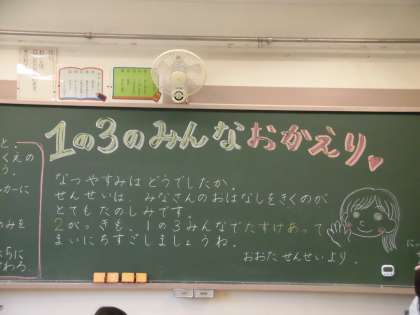 1の3のみんなおかえり
なつやすみはどうでしたか。
せんせいは、みなさんのおはなしをきくのが
とてもたのしみです。
2がっきも、1の3みんなでたすけあって
まいにちすごしましょうね。
おおたせんせいより。
と。
くえの
う。
カーに
みを
ちに
わろう。
にっ